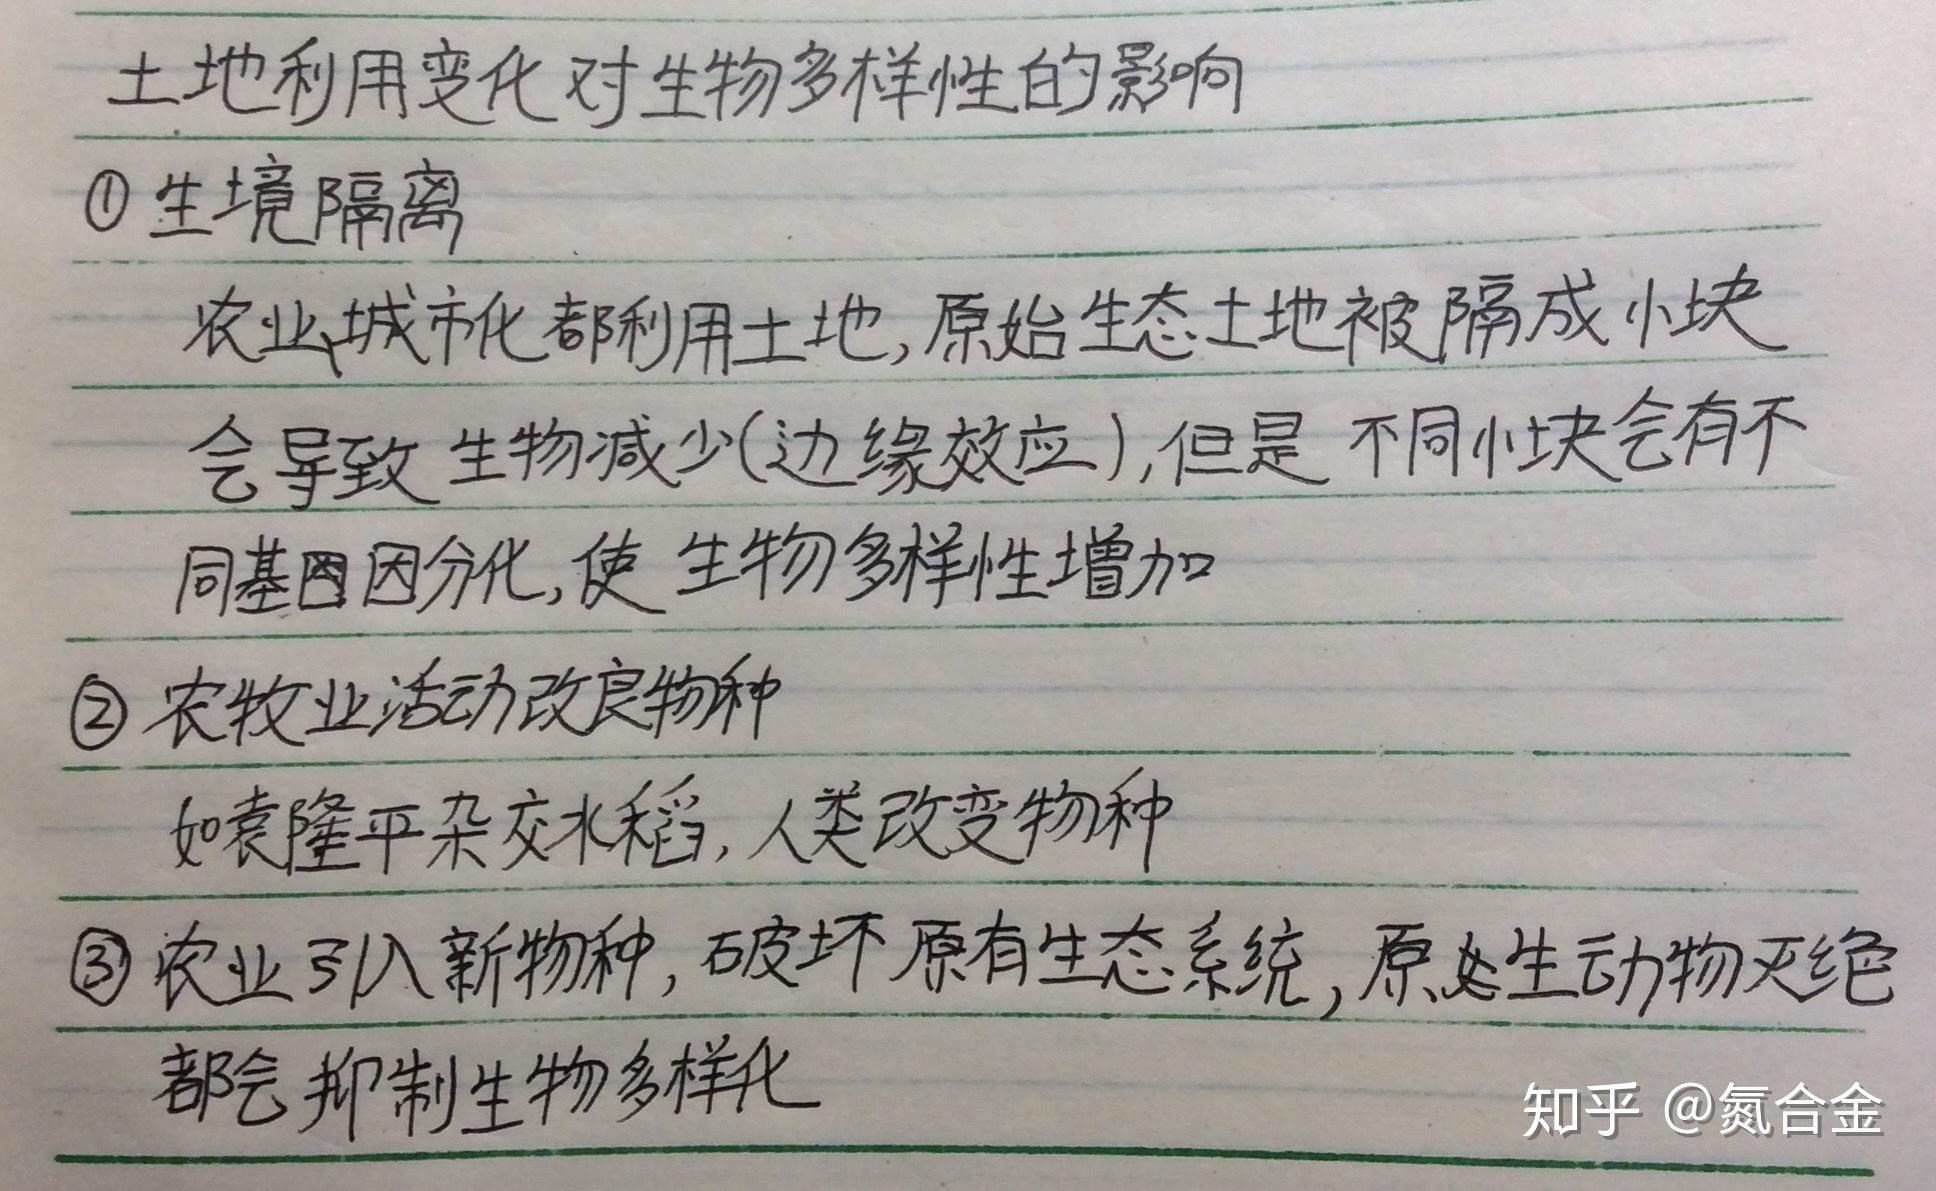 土地利用变化对生物多样性的影响
①生境隔离
农业、城市化都利用土地,原始生态土地被隔成小块
会导致生物减少(边缘效应),但是不同小块会有不
同基因分化,使生物多样性增加
②农牧业活动改良物种
如袁隆平杂交水稻,人类改变物种
③农业引入新物种,破坏原有生态系统,原生动物灭绝
都会抑制生物多样化
知乎 @氮合金